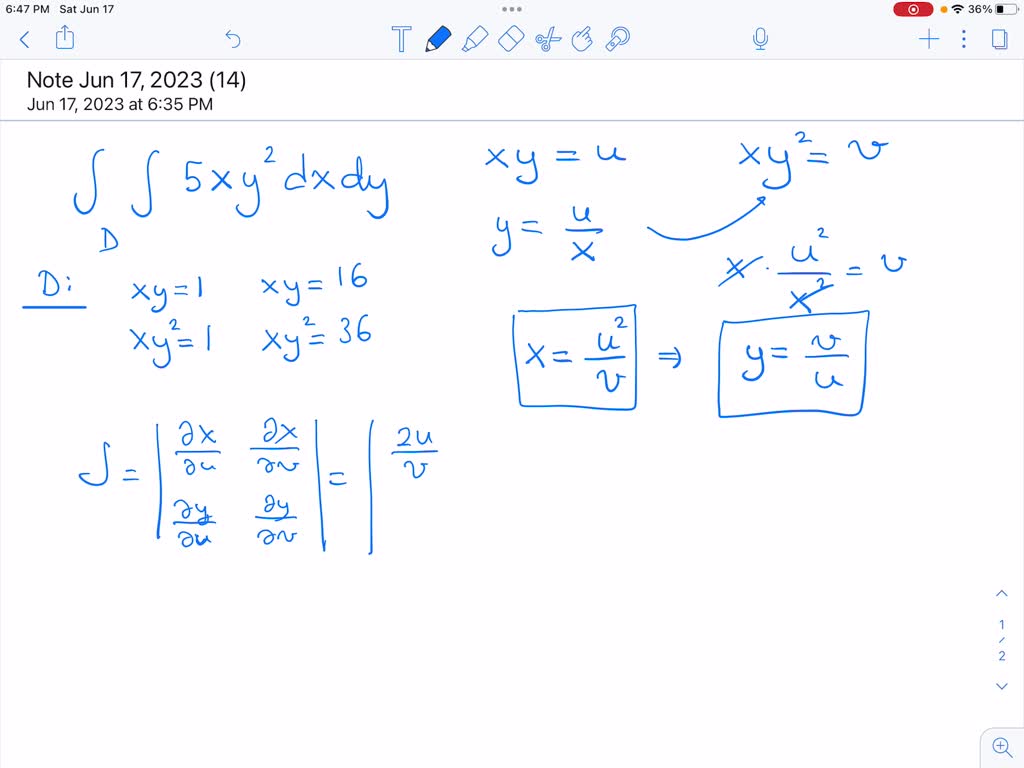 6:47 PM Sat Jun 17
36%
Note Jun 17, 2023 (14)
Jun 17, 2023 at 6:35 PM
∫∫_D 5xy² dxdy
D: xy = 1 xy = 16
xy² = 1 xy² = 36
xy = u xy² = v
y = u/x
x · u²/x² = v
x = u²/v ⇒ y = v/u
J = | ∂x/∂u ∂x/∂v | = | 2u/v
∂y/∂u ∂y/∂v
1
/
2